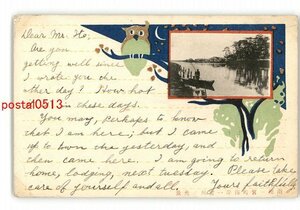 Dear Mr. Ho;
Are you
getting well since
I wrote you the
other day? How hot
in these days.
postal10513
You may, perhaps to know
that I am here; but I came
up to town the yesterday, and
then came here. I am going to return
home, lodging, next tuesday. Please take
care of yourself and all. Yours faithfully